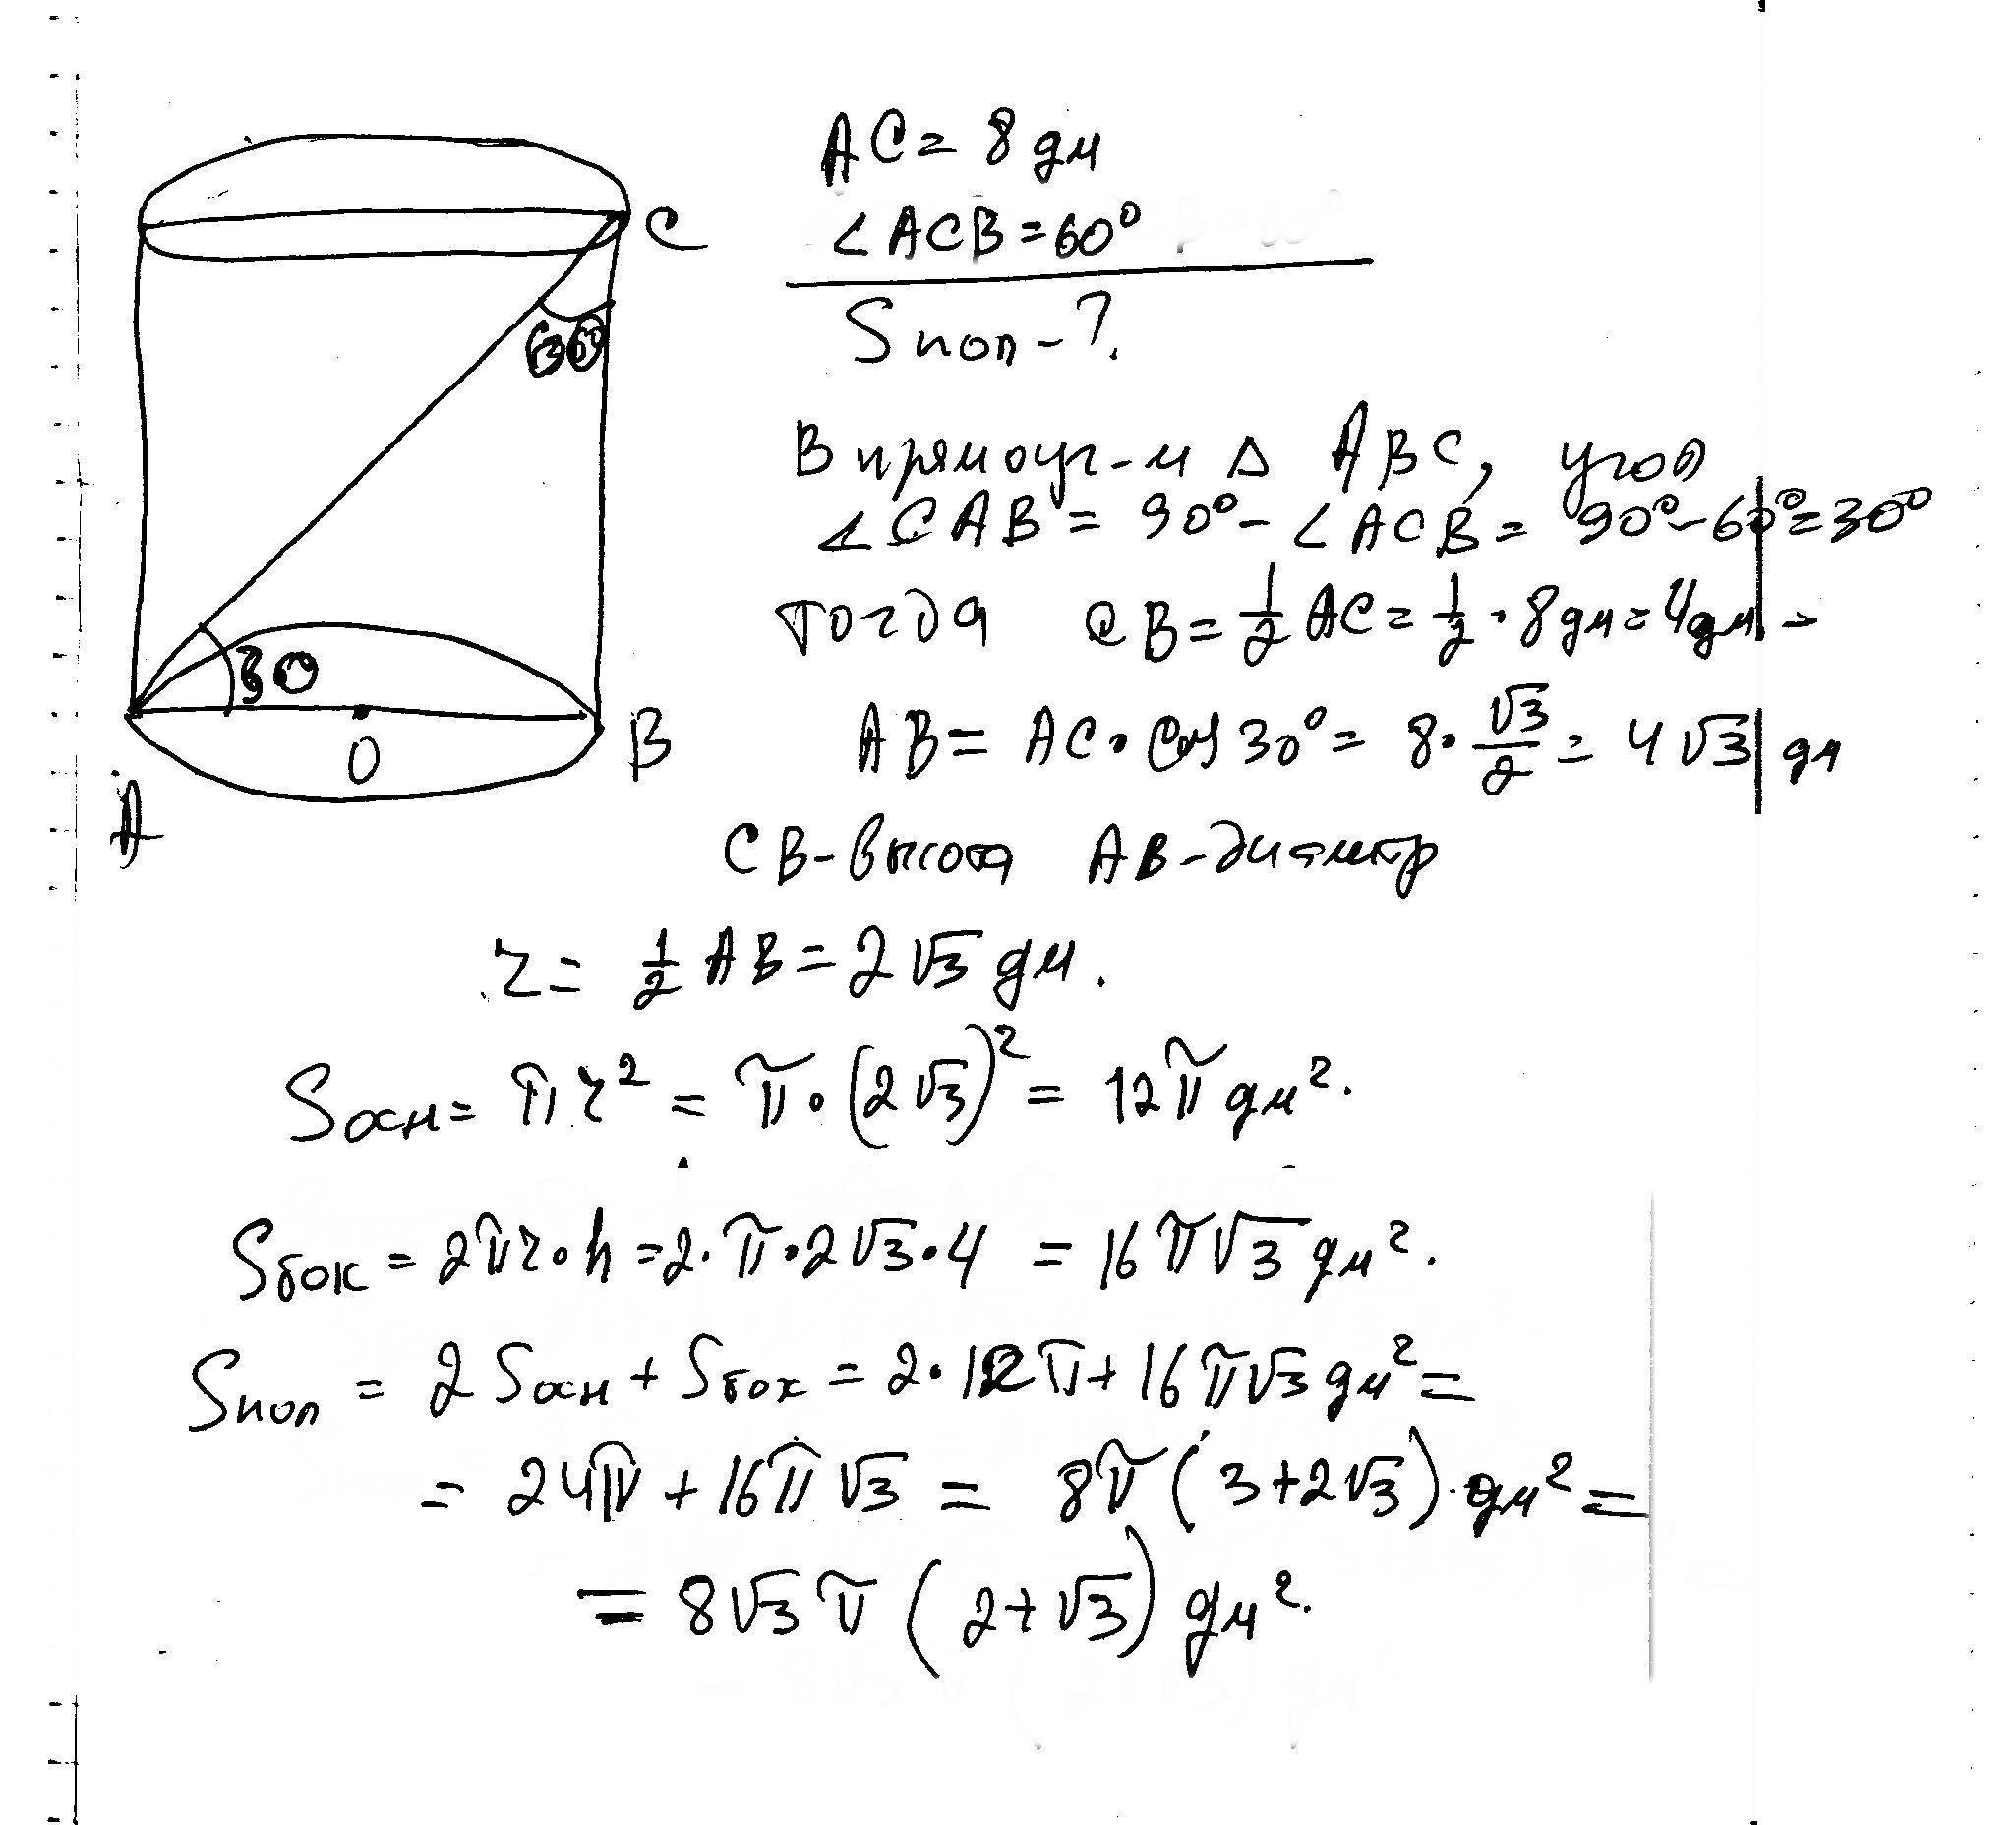 AC = 8 дм
∠ACB = 60°
Sпол - ?
C
60
30
O
B
A
В прямоуг-м Δ ABC, угол
∠CAB = 90° - ∠ACB = 90° - 60° = 30°
тогда CB = 1/2 AC = 1/2 · 8 дм = 4 дм -
AB = AC · cos 30° = 8 · √3/2 = 4√3 дм
CB - высота AB - диаметр
r = 1/2 AB = 2√3 дм.
Sосн = πr² = π · (2√3)² = 12π дм².
Sбок = 2πr · h = 2 · π · 2√3 · 4 = 16π√3 дм².
Sпол = 2Sосн + Sбок = 2 · 12π + 16π√3 дм² =
= 24π + 16π√3 = 8π(3 + 2√3) · дм² =
= 8√3π(2 + √3) дм².